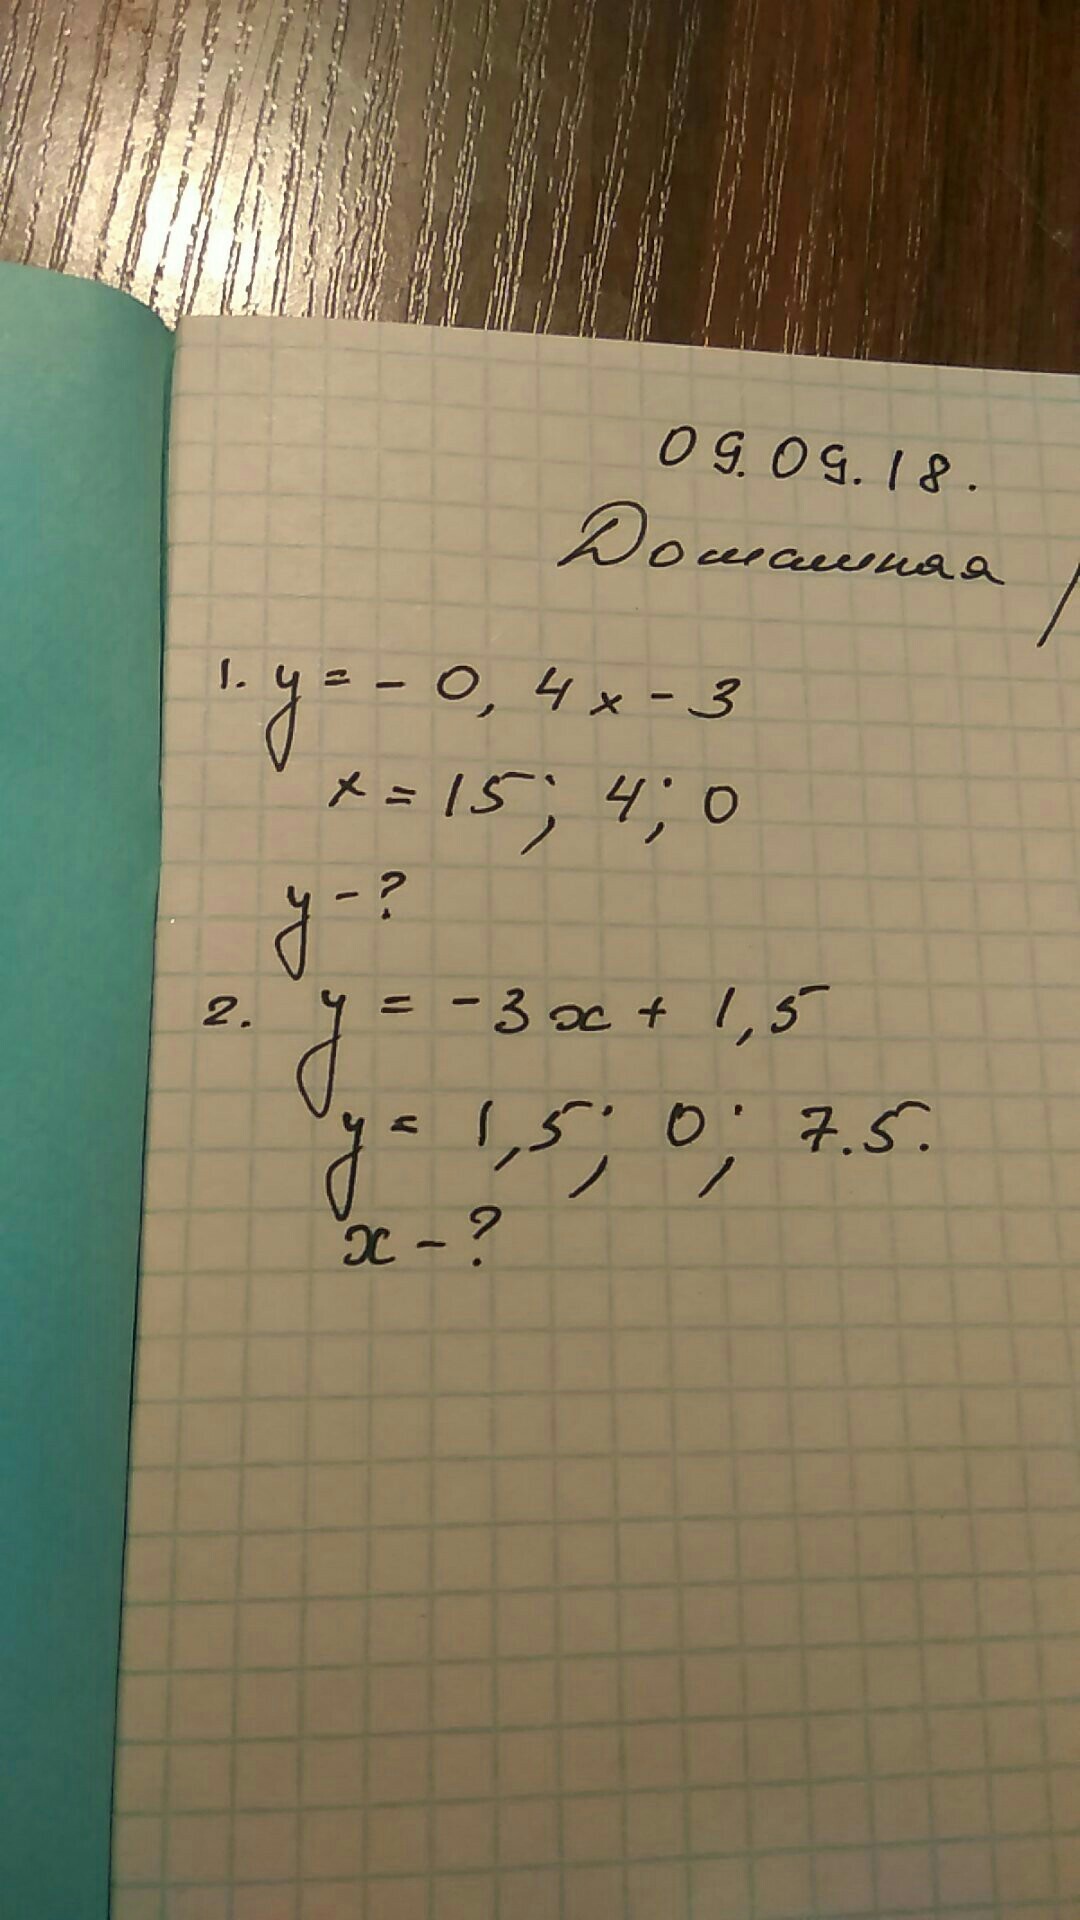 09.09.18.
Домашняя
1. y = - 0,4x - 3
x = 15; 4; 0
y - ?
2. y = -3x + 1,5
y = 1,5; 0; 7.5.
x - ?